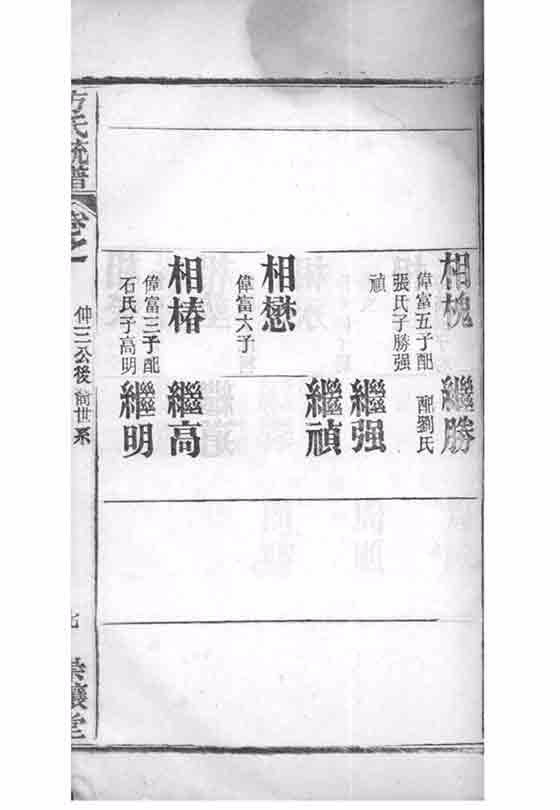 相槐
偉富五子配
張氏子勝强
禎
相懋
偉富六子
相椿
偉富三子配
石氏子高明
繼勝
配劉氏
繼强
繼禎
繼高
繼明
方氏統譜
卷之一
仲三公後
世系
七